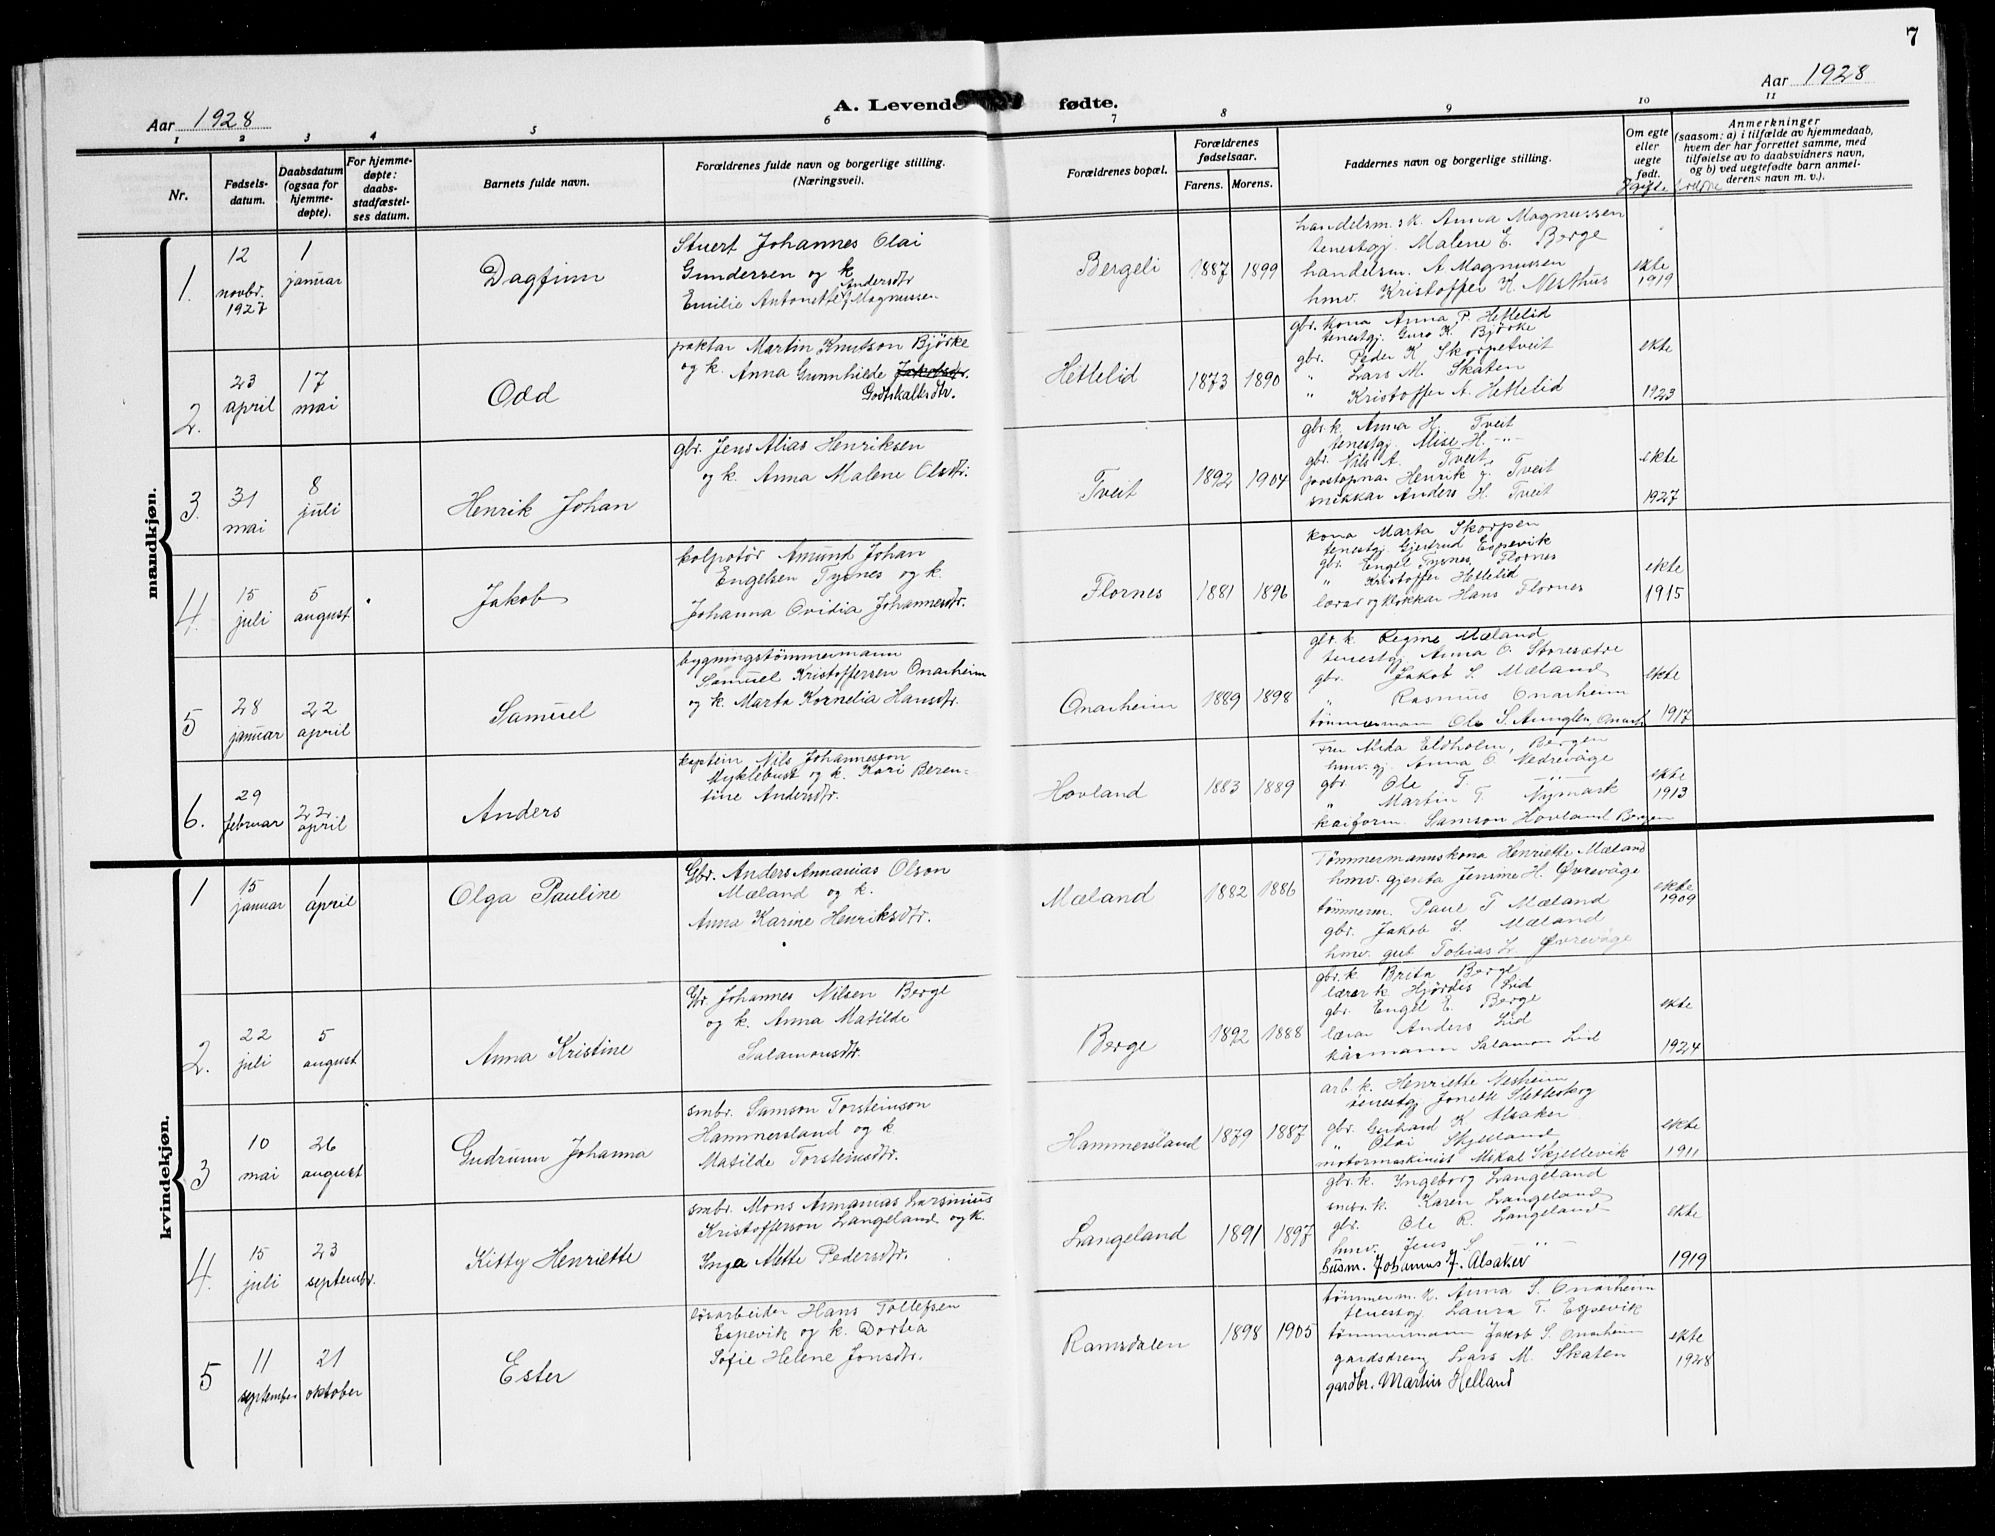 7
Aar 1928
A. Levende fødte.
Aar 1928
1 2 3 4 5 6 7 8 9 10 11
Nr.
Fødsels-
datum.
Daabsdatum
(ogsaa for
hjemme-
døpte).
For hjemme-
døpte:
daabs-
stadfæstel-
ses datum.
Barnets fulde navn.
Forældrenes fulde navn og borgerlige stilling.
(Næringsvei).
Forældrenes bopæl.
Forældrenes
fødselsaar.
Farens. Morens.
Faddernes navn og borgerlige stilling.
Om egte
eller
uegte
født.
Anmerkninger
(saasom: a) i tilfælde av hjemmedaab,
hvem der har forrettet samme, med
tilføielse av to daabsvidners navn,
og b) ved uegtefødte barn anmel-
derens navn m. v.).
mandkjøn.
1.
12
novbr.
1927
1
januar
Dagfinn
Stuert Johannes Olai
Gundersen og k
Andersdtr
Emilie Antonette Magnussen
Bergeli
1887 1899
handelsm.sk. Anna Magnussen
tenestgj. Malene E. Berge
handelsm. A. Magnussen
hmv. Kristoffer K. Nesthus
ekte
1919
2.
23
april
17
mai
Odd
paktar Martin Knutson Bjørke
og k. Anna Gunnhilde Jakobsdtr.
Godtskalksdtr.
Hettelid
1873 1890
gbr. kona Anna P. Hettelid
tenestgj. Guro K. Bjørke
gbr. Peder K. Skorpetveit
" Lars M. Skaten
" Kristoffer A. Hettelid
ekte
1923
3.
31
mai
8
juli
Henrik Johan
gbr. Jens Alias Henriksen
og k. Anna Malene Olsdtr.
Tveit
1892 1904
gbr.k. Anna H. Tveit
tenestgj. Alise H. -"-
gbr. Nils A. Tveit
postopnar Henrik J. Tveit
snikkar Anders H. Tveit
ekte
1927
4.
15
juli
5
august
Jakob
kolpotør Amund Johan
Engelsen Tysnes og k.
Johanna Ovidia Johannesdtr.
Flornes
1881 1896
kona Marta Skorpen
tenestgj. Gjertrud Espevik
gbr. Engel Tysnes, Flornes
" Kristoffer Hettelid
lærar og klokkar Hans Flornes
ekte
1915
5
28
januar
22
april
Samuel
bygningstømmermann
Samuel Kristoffersen Onarheim
og k. Marta Kornelia Hansdtr.
Onarheim
1889 1898
gbr. k. Regine Mæland
tenestgj. Anna O. Storesætre
gbr. Jakob S. Mæland
" Rasmus Onarheim
tømmermann Ole S.
ekte
1917
6.
29
februar
22
april
Anders
kaptein Nils Johannesson
Myklebust og k. Kari Beren-
tine Andersdtr.
Hovland
1883 1889
Fru Mida Eldholm, Bergen
hmv. gj. Anna O. Nedrevåge
gbr. Ole T. -"-
" Martin T. Nymark
kaiform. Samson Hovland Bergen
ekte
1913
kvindekjøn.
1
15
januar
1
april
Olga Pauline
Gbr. Anders Annanias Olson
Mæland og k.
Anna Karine Henriksdtr.
Mæland
1882 1886
Tømmermannskona Henriette Mæland
hmv. gjenta Jensine H. Øvrevåge
tømmerm. Paul T Mæland
gbr. Jakob S. Mæland
hmv. gut Tobias L. Øvrevåge
ekte
1909
2.
22
juli
5
august
Anna Kristine
Gbr Johannes Nilsen Berge
og k. Anna Matilde
Salamonsdtr.
Berge
1892 1888
gbr. k. Brita Berge
lærar k. Hjørdis Lid
gbr. Engel E. Berge
lærar Anders Lid
kårmann Salamon Lid
ekte
1924
3
10
mai
26
august
Gudrunn Johanna
smbr. Samson Torsteinson
Hammersland og k
Matilde Torsteinsdtr.
Hammersland
1879 1887
arb. k. Henriette Nesheim
tenestgj Jonette Sletteskog
gbr. Gerhard K. Alsaker
" Olai Skjelland
motormaskinist Mikal Skjellevik
ekte
1911
4.
15
juli
23
septembr.
Kitty Henriette
smbr. Mons Annanias Larsinius
Kristofferson Langeland og k.
Inga Mette Pedersdtr.
Langeland
1891 1897
gbr. k. Ingeborg Langeland
smbr. k. Karen Langeland
gbr. Ole R. Langeland
hmv. Jens S. -"-
busm. Johannes J. Alsaker
ekte
1919
5
11
september
21
oktober
Ester
lausarbeider Hans Tollefsen
Espevik og k. Dortea
Sofie Helene Jonsdtr.
Ramsdalen
1898 1905
tømmerm. k. Anna S. Onarheim
tenestgj Laura T. Espevik
tømmermann Jakob S. Onarheim
gardsdreng Lars M. Skaten
gardbr. Martin Helland
ekte
1928